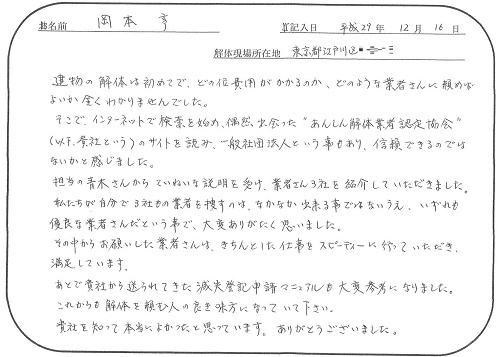 お名前 岡本 享 ご記入日 平成29年 12月 16日
解体現場所在地 東京都江戸川区
建物の解体は初めてで、どの位費用がかかるのか、どのような業者さんに頼めば
よいか全くわかりませんでした。
そこで、インターネットで検索を始め、偶然出会った"あんしん解体業者認定協会"
(以下、貴社という)のサイトを読み、一般社団法人という事もあり、信頼できるのでは
ないかと感じました。
担当の青木さんからていねいな説明を受け、業者さん3社を紹介していただきました。
私たちが自分で3社もの業者を捜すのは、なかなか出来る事ではないうえ、いずれも
優良な業者さんだという事で、大変ありがたく思いました。
その中からお願いした業者さんは、きちんとした仕事をスピーディーに行っていただき、
満足しています。
あとで貴社から送られてきた滅失登記申請マニュアルも大変参考になりました。
これからも解体を頼む人の良き味方になっていて下さい。
貴社を知って本当によかったと思っています。ありがとうございました。